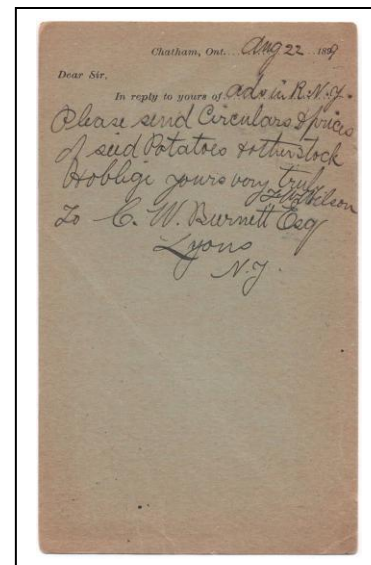 Chatham, Ont. Aug 22 1889
Dear Sir,
In reply to yours of ads in R. N. Y.
Please send Circulars & prices
of seed Potatoes & other stock
& oblige yours very truly
Wilson
To C. W. Burnett Esq
Lyons
N. Y.